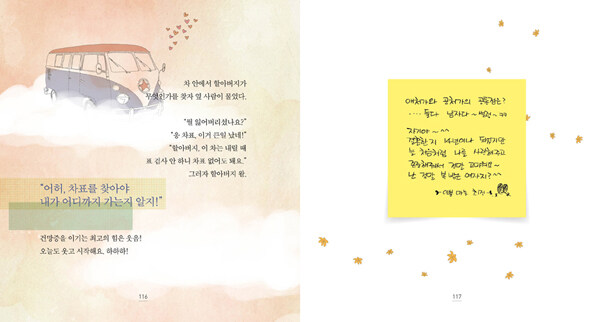 차 안에서 할아버지가
무엇인가를 찾자 옆 사람이 물었다.
"뭘 잃어버리셨나요?"
"응 차표, 이거 큰일 났네!"
"할아버지, 이 차는 내릴 때
표 검사 안 하니 차표 없어도 돼요."
그러자 할아버지 왈,
"어허, 차표를 찾아야
내가 어디까지 가는지 알지!"
건망증을 이기는 최고의 힘은 웃음!
오늘도 웃고 시작해요, 하하하!
116
애처가와 공처가의 공통점은?
.... 둘다 남자다~
자기야~^^
결혼한지 14년이나 되었지만
늘 처음처럼 나를 사랑해주고
정말 고마워요~
난 정말 복 받은 여자지?^^
117